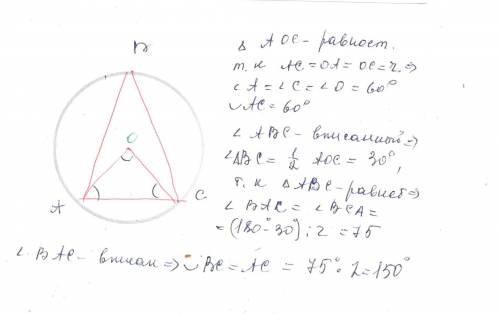 B
O
A
C
Δ AOC - равност.
т. к AC = OA = OC = r. ⇒
∠A = ∠C = ∠O = 60°
◡AC = 60°
∠ ABC - вписанный ⇒
∠ABC = 1/2 AOC = 30°,
т. к Δ ABC - равноб ⇒
∠ BAC = ∠ BCA =
= (180° - 30°) : 2 = 75
∠ BAC - вписан ⇒ ◡ BC = AC = 75° · 2 = 150°